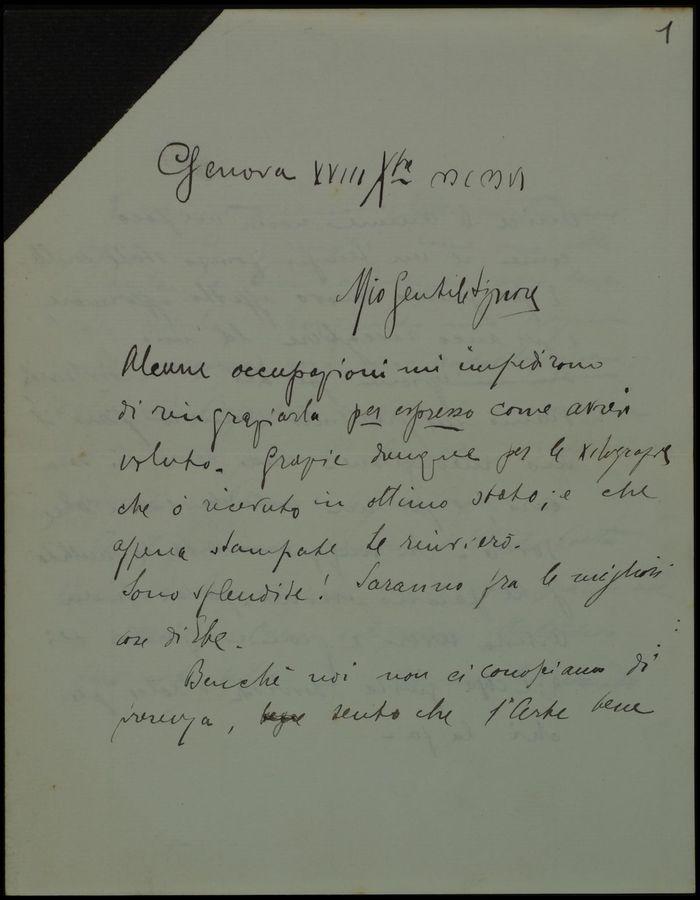 1
Genova XVIII Xbre MCMVI
Mio Gentile Signore
Alcune occupazioni mi impedirono
di ringraziarla per espresso come avrei
voluto. Grazie dunque per le xilografie
che ò ricevuto in ottimo stato; e che
appena stampate Le rinvierò.
Sono splendide! Saranno fra le migliori
cose di Ebe.
Benchè noi non ci conosciamo di
presenza, sento che l'Arte bene